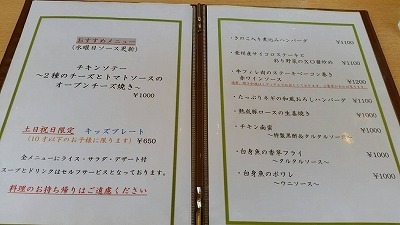 おすすめメニュー
(水曜日ソース更新)
チキンソテー
～2種のチーズとトマトソースの
オーブンチーズ焼き～
¥1000
土日祝日限定 キッズプレート
(10才以下のお子様に限ります) ¥650
全メニューにライス・サラダ・デザート付
スープとドリンクはセルフサービスとなっております。
料理のお持ち帰りはご遠慮ください
・きのこ入り煮込みハンバーグ ¥1100
サイコロステーキと
彩り野菜のXO醤炒め ¥1100
・牛フィレ肉のステーキベーコン巻き
赤ワインソース ¥1200
・たっぷりネギの和風おろしハンバーグ ¥1100
・熟成豚ロースの生姜焼き ¥1000
・チキン南蛮 ¥1000
～特製黒酢&タルタルソース～
・白身魚の香草フライ ¥1000
～タルタルソース～
・白身魚のポワレ ¥1000
～ウニソース～